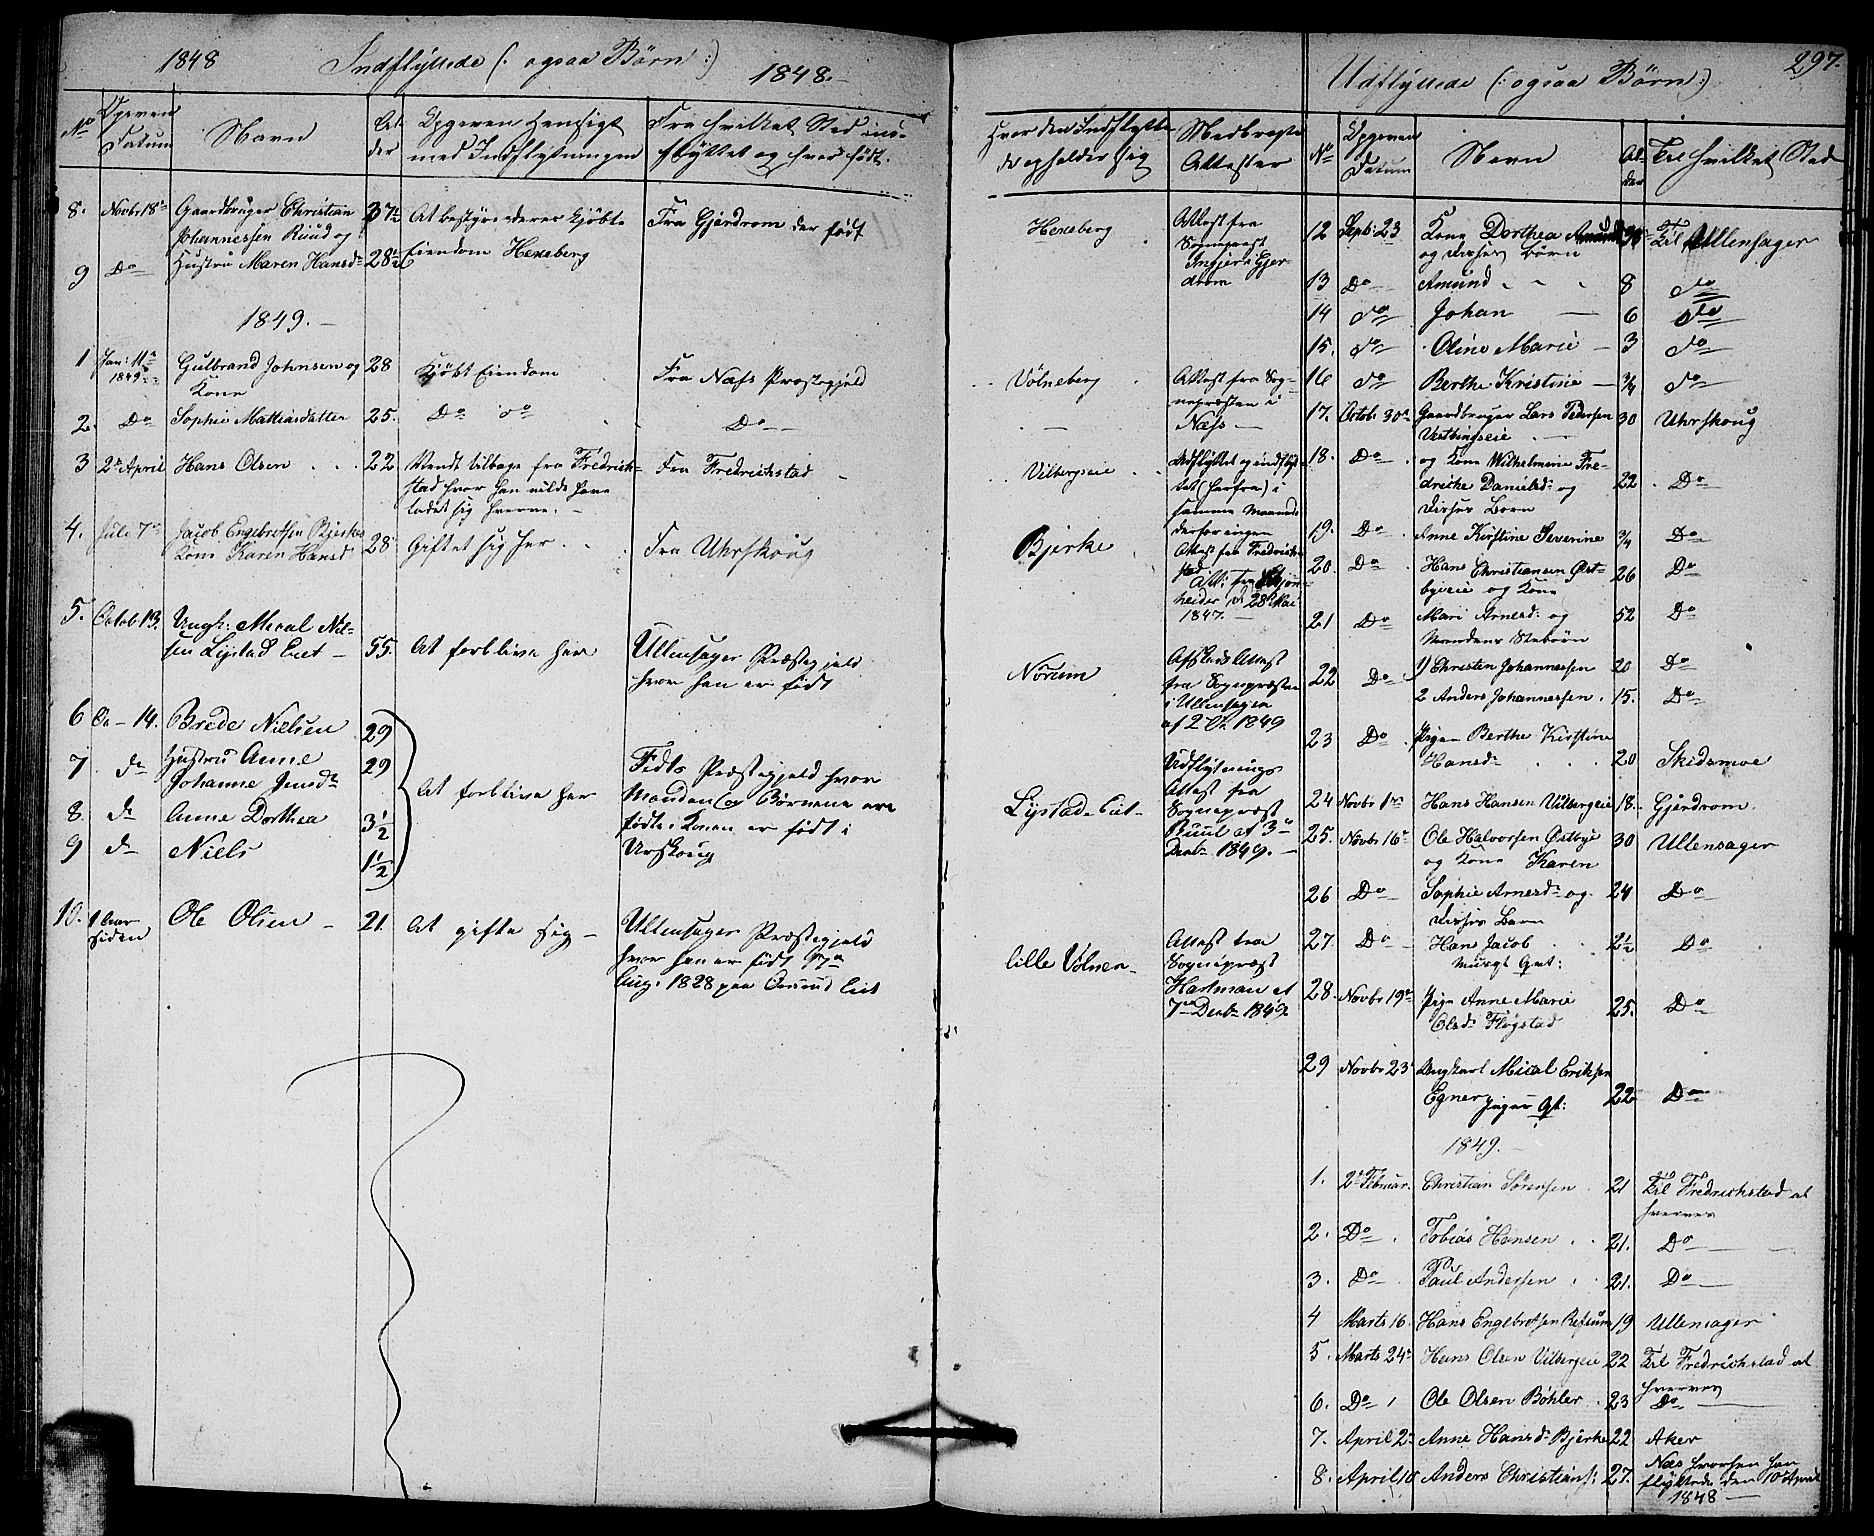 1848 Indflyttede (: ogsaa Børn :) 1848.-
No
Opgiven
Datum
Navn
Al
der
Opgiven Hensigt
med Indflytningen
Fra hvilket Sted ind-
flyttet og hvor født.
8. Novbr 18de Gaardbruger Christian 37½ At bestyre deres kjøbte Fra Gjerdrom der født
Johannessen Ruud og
9 Do Hustru Maren Hansdr 28½ Eiendom Hexeberg
1849.-
1 Jan: 11te Gulbrand Johnsen og 28 Kjøbt Eiendom Fra Næs Præstegjeld
1849
Kone
2. Do Sophie Mathiasdatter 25. Do do Do
3 2den April Hans Olsen 22 Vendt tilbage fra Fredrik- Fra Fredrichstad
stad hvor han vilde have
ladet sig hverve.-
4. Juli 7de Jacob Engebretsen Bjerkes
Kone Karen Hansdr 28 Giftet sig her Fra Uhrskoug
5. Octob. 13. Ungk: Meral Niel-
sen Lystad Eiet - 55. At forblive her Ullensager Præstegjeld
hvor han er født
6 Do - 14. Brede Nielsen 29
7 do Hustru Anne 29
Johanne Jensdr
8. do Anne Dorthea 3½
9 do Niels 1½
At forblive her
Fedts Præstegjeld hvor
Manden og Børnene ere
fødte; Konen er født i
Urskoug
10. 1 Aar
siden
Ole Olsen - 21. At gifte sig - Ullensager Præstegjeld
hvor han er født
Aug: 1828 paa Eiet
Udflyttede (: ogsaa Børn :) 297.
Hvor den Indflytte
de opholder sig
Medbragte
Attester
No
Opgiven
Datum
Navn
Al-
der
Til hvilket Sted
Hexeberg
Attest fra
Sognepræst
i Gjer-
drom
Völneberg
Attest fra Sog-
nepræsten i
Næs -
Vilbergeie
Udflyttet og indflyt
tet (herfra) i
samme Maaned
derfor ingen
Attest fra Fredrick
stad
Bjerke
28 Mai
1847.-
Nörum
Afskeds Attest
fra Sognepræsten
i Ullensager
af 2 1849
Lystad Eiet-
Udflytnings
Attest fra
Sognepræst
Ruul af 3die
Decbr 1849.-
lille Volnen-
Attest fra
Sognepræst
Hartman af
7de Decbr 1849
12 Septb: 23 Kone Dorthea Til Ullensager
og disses Børn
13 Do Amund 8 do
14 do Johan 6 do
15. do Oline Marie 3 do
16 do Berthe Kristine - ¾ do
17. Octobr 30te Gaardbruger Lars Pedersen 30 Uhrskoug
18. Do og Kone Wilhelmine Fre-
dricke Danielsdr og 22 Do
disses Barn
19. Do Anne Kirstine Severine ¾ Do
20. Do Hans Christiansen Øst- 26 Do
byeie og Kone
21 Do Mari Arnesdr og 52 Do
Mandens Stebørn
22 Do 1) Christen Johannessen 20 Do
2 Anders Johannessen 15. Do
23 Do Pigen Berthe Kirstine
Hansdr 20 Skedsmoe
24 Novbr 1ste Hans Hansen Vilbergeie 18. Gjerdrom.
25. Novbr 16de Ole Halvorsen Østbye 30 Ullensager
og Kone Karen
26 Do Sophie Arnesdr og 24 Do
disses Barn
27. Do Hans Jacob 2½ Do
28. Novbr 19de Pige Anne Marie 25. Do
Olsdr Fløgstad
29 Novbr 23de Ungkarl Mical Eriksen
Egner 22 Do
1849.-
1. 2den Februar. Christian Sörensen 21 Til Fredrichstad at
hverves
2. Do Tobias Hansen 21. Do
3. Do Paul Andersen 21. Do
4 Marts 16. Hans Engebretsen Refsum 19 Ullensager
5. Marts 24de Hans Olsen Vilbergeie 22 Til Fredrichstad at
hverves
6. Do Ole Olsen Böhler 23 Do
7. April 2den Anne Hansdr Bjerke 22 Aker
8. April 10 Anders Christians: 27. Næs hvorhen han
flyttede den 10de April
1848 -